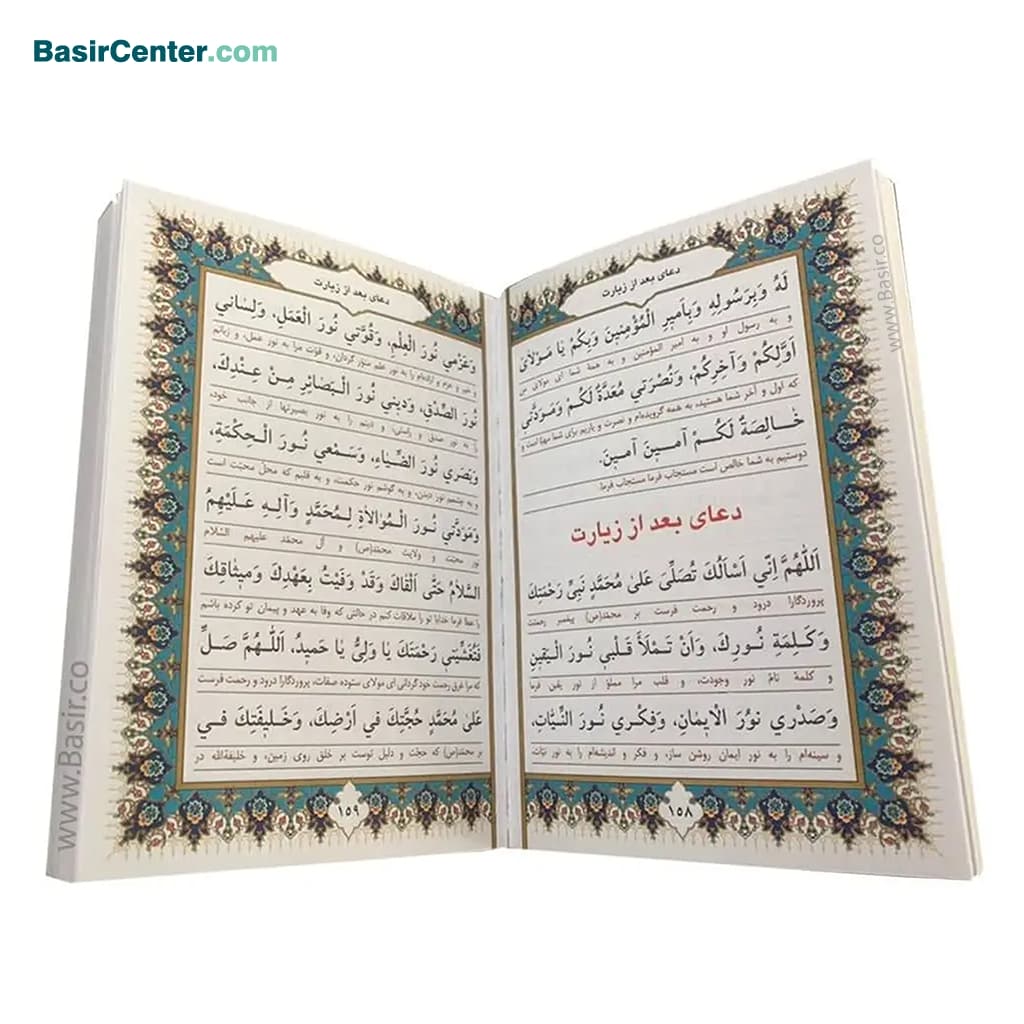 BasirCenter.com
دعای بعد از زیارت
لَهُ وَبِرَسُولِهِ وَبِاَمیرِ الْمُؤْمِنینَ وَبِکُمْ یَا مَوْلاٰیَ
و به رسول او و به امیر المؤمنین و به همهٔ شما ای مولای من
اَوَّلِکُمْ وَآخِرِکُمْ، وَنُصْرَتی مُعَدَّةٌ لَکُمْ وَمَوَدَّتی
که اول و آخر شما هستید، به همه گرویده‌ام و نصرت و یاریم برای شما مهیّا است و
خٰالِصَةٌ لَکُمْ آمینَ آمینَ.
دوستیم به شما خالص است مستجاب فرما مستجاب فرما.
دعای بعد از زیارت
اَللّٰهُمَّ اِنّی اَسْاَلُکَ تُصَلِّیَ عَلیٰ مُحَمَّدٍ نَبِیِّ رَحْمَتِکَ
پروردگارا درود و رحمت فرست بر محمّد(ص) پیغمبر رحمتت
وَکَلِمَةِ نُورِکَ، وَاَنْ تَمْلَأَ قَلْبی نُورَ الْیَقینِ
و کلمهٔ تامّ نور وجودت، و قلب مرا مملوّ از نور یقین فرما
وَصَدْری نُورُ الْایمٰانِ، وَفِکْری نُورَ النِّیّٰاتِ،
و سینه‌ام را به نور ایمان روشن ساز، و فکر و اندیشه‌ام را به نور نیّات،
١٥٨
دعای بعد از زیارت
وَعَزْمی نُورَ الْعِلْمِ، وَقُوَّتی نُورَ الْعَمَلِ، وَلِسٰانی
خیر و عزم و اراده‌ام را به نور علم منوّر گردان، و قوّت مرا به نور عمل، و زبانم
نُورَ الصِّدْقِ، وَدینی نُورَ الْبَصٰائِرِ مِنْ عِنْدِکَ،
را به نور صدق و راستی، و دینم را به نور بصیرتها از جانب خود،
وَبَصَری نُورَ الضِّیٰاءِ، وَسَمْعی نُورَ الْحِکْمَةِ،
و به چشمم نور دیدن، و به گوشم نور حکمت، و به قلبم که محل محبّت است
وَمَوَدَّتی نُورَ الْمُوٰالاٰةِ لِمُحَمَّدٍ وَآلِهِ عَلَیْهِمُ
نور محبّت و ولایت محمّد(ص) و آل محمّد علیهم السّلام
السَّلاٰمُ حَتّٰی اَلْقٰاکَ وَقَدْ وَفَیْتُ بِعَهْدِکَ وَمیثٰاقِکَ
را عطا فرما خدایا تو را ملاقات کنم در حالتی که وفا به عهد و پیمان تو کرده باشم
فَتُغَشِّیَنی رَحْمَتَکَ یٰا وَلِیُّ یٰا حَمیدُ، اَللّٰهُمَّ صَلِّ
که مرا غرق رحمت خود گردانی ای مولای ستوده صفات، پروردگارا درود و رحمت فرست
عَلیٰ مُحَمَّدٍ حُجَّتِکَ فی اَرْضِکَ، وَخَلیفَتِکَ فی
بر محمّد(ص) که حجّت و دلیل توست بر خلق روی زمین، و خلیفةالله در
١٥٩
www.Basir.co
www.Basir.co